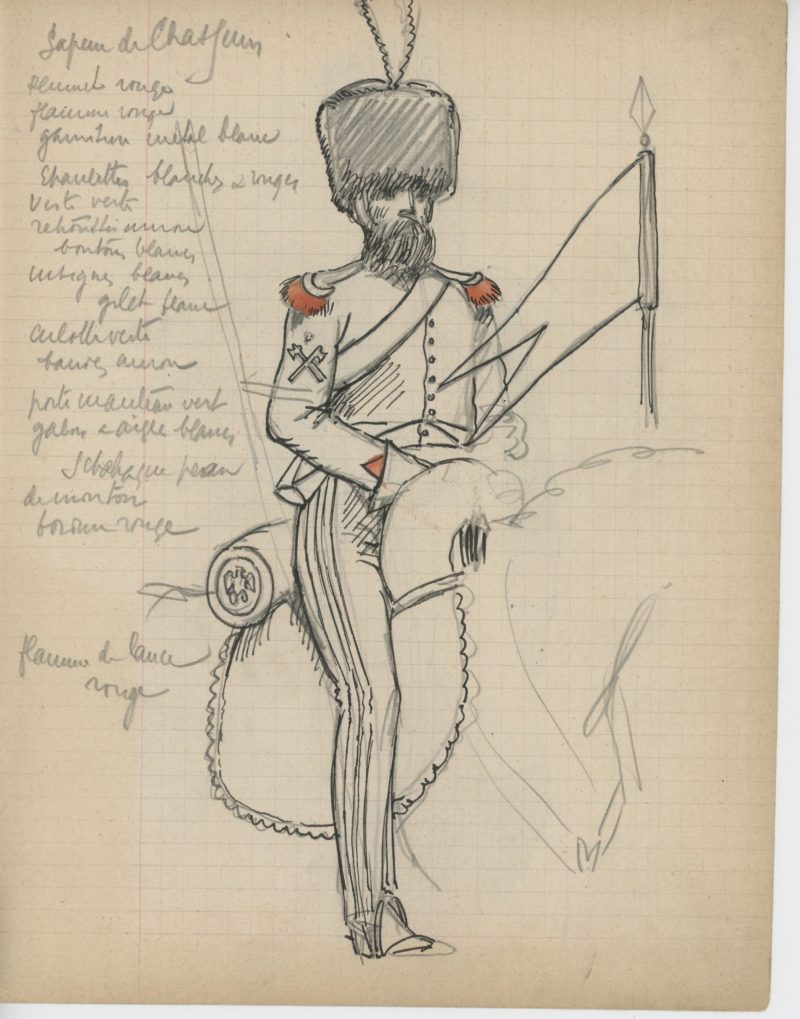 Sapeur de Chasseurs
plumet rouge
flamme rouge
garniture métal blanc
Epaulettes blanches & rouges
Veste verte
retroussis aurore
boutons blancs
insignes blancs
gilet blanc
culotte verte
bandes aurore
porte manteau vert
galons & aigle blancs
Schabraque peau
de mouton
bordure rouge
flamme de lance
rouge